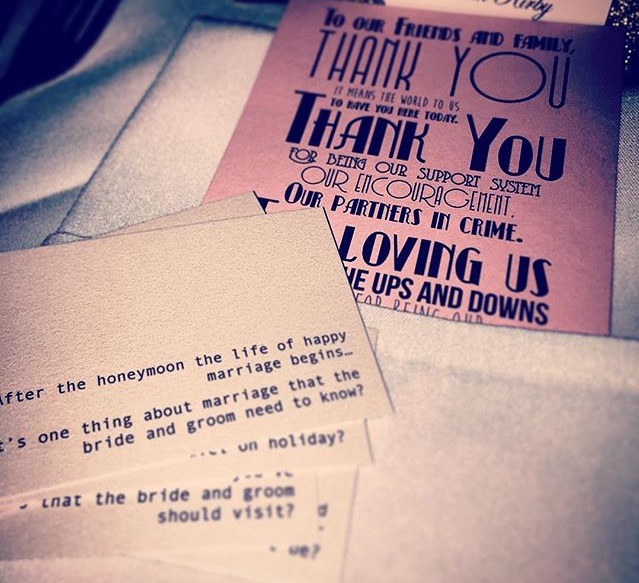 Kirby
TO OUR FRIENDS AND FAMILY,
THANK YOU
IT MEANS THE WORLD TO US
TO HAVE YOU HERE TODAY.
THANK YOU
FOR BEING OUR SUPPORT SYSTEM
OUR ENCOURAGEMENT.
OUR PARTNERS IN CRIME.
LOVING US
HE UPS AND DOWNS
FOR BEING OUR
After the honeymoon the life of happy
marriage begins…
t's one thing about marriage that the
bride and groom need to know?
on holiday?
that the bride and groom
should visit?
ve?